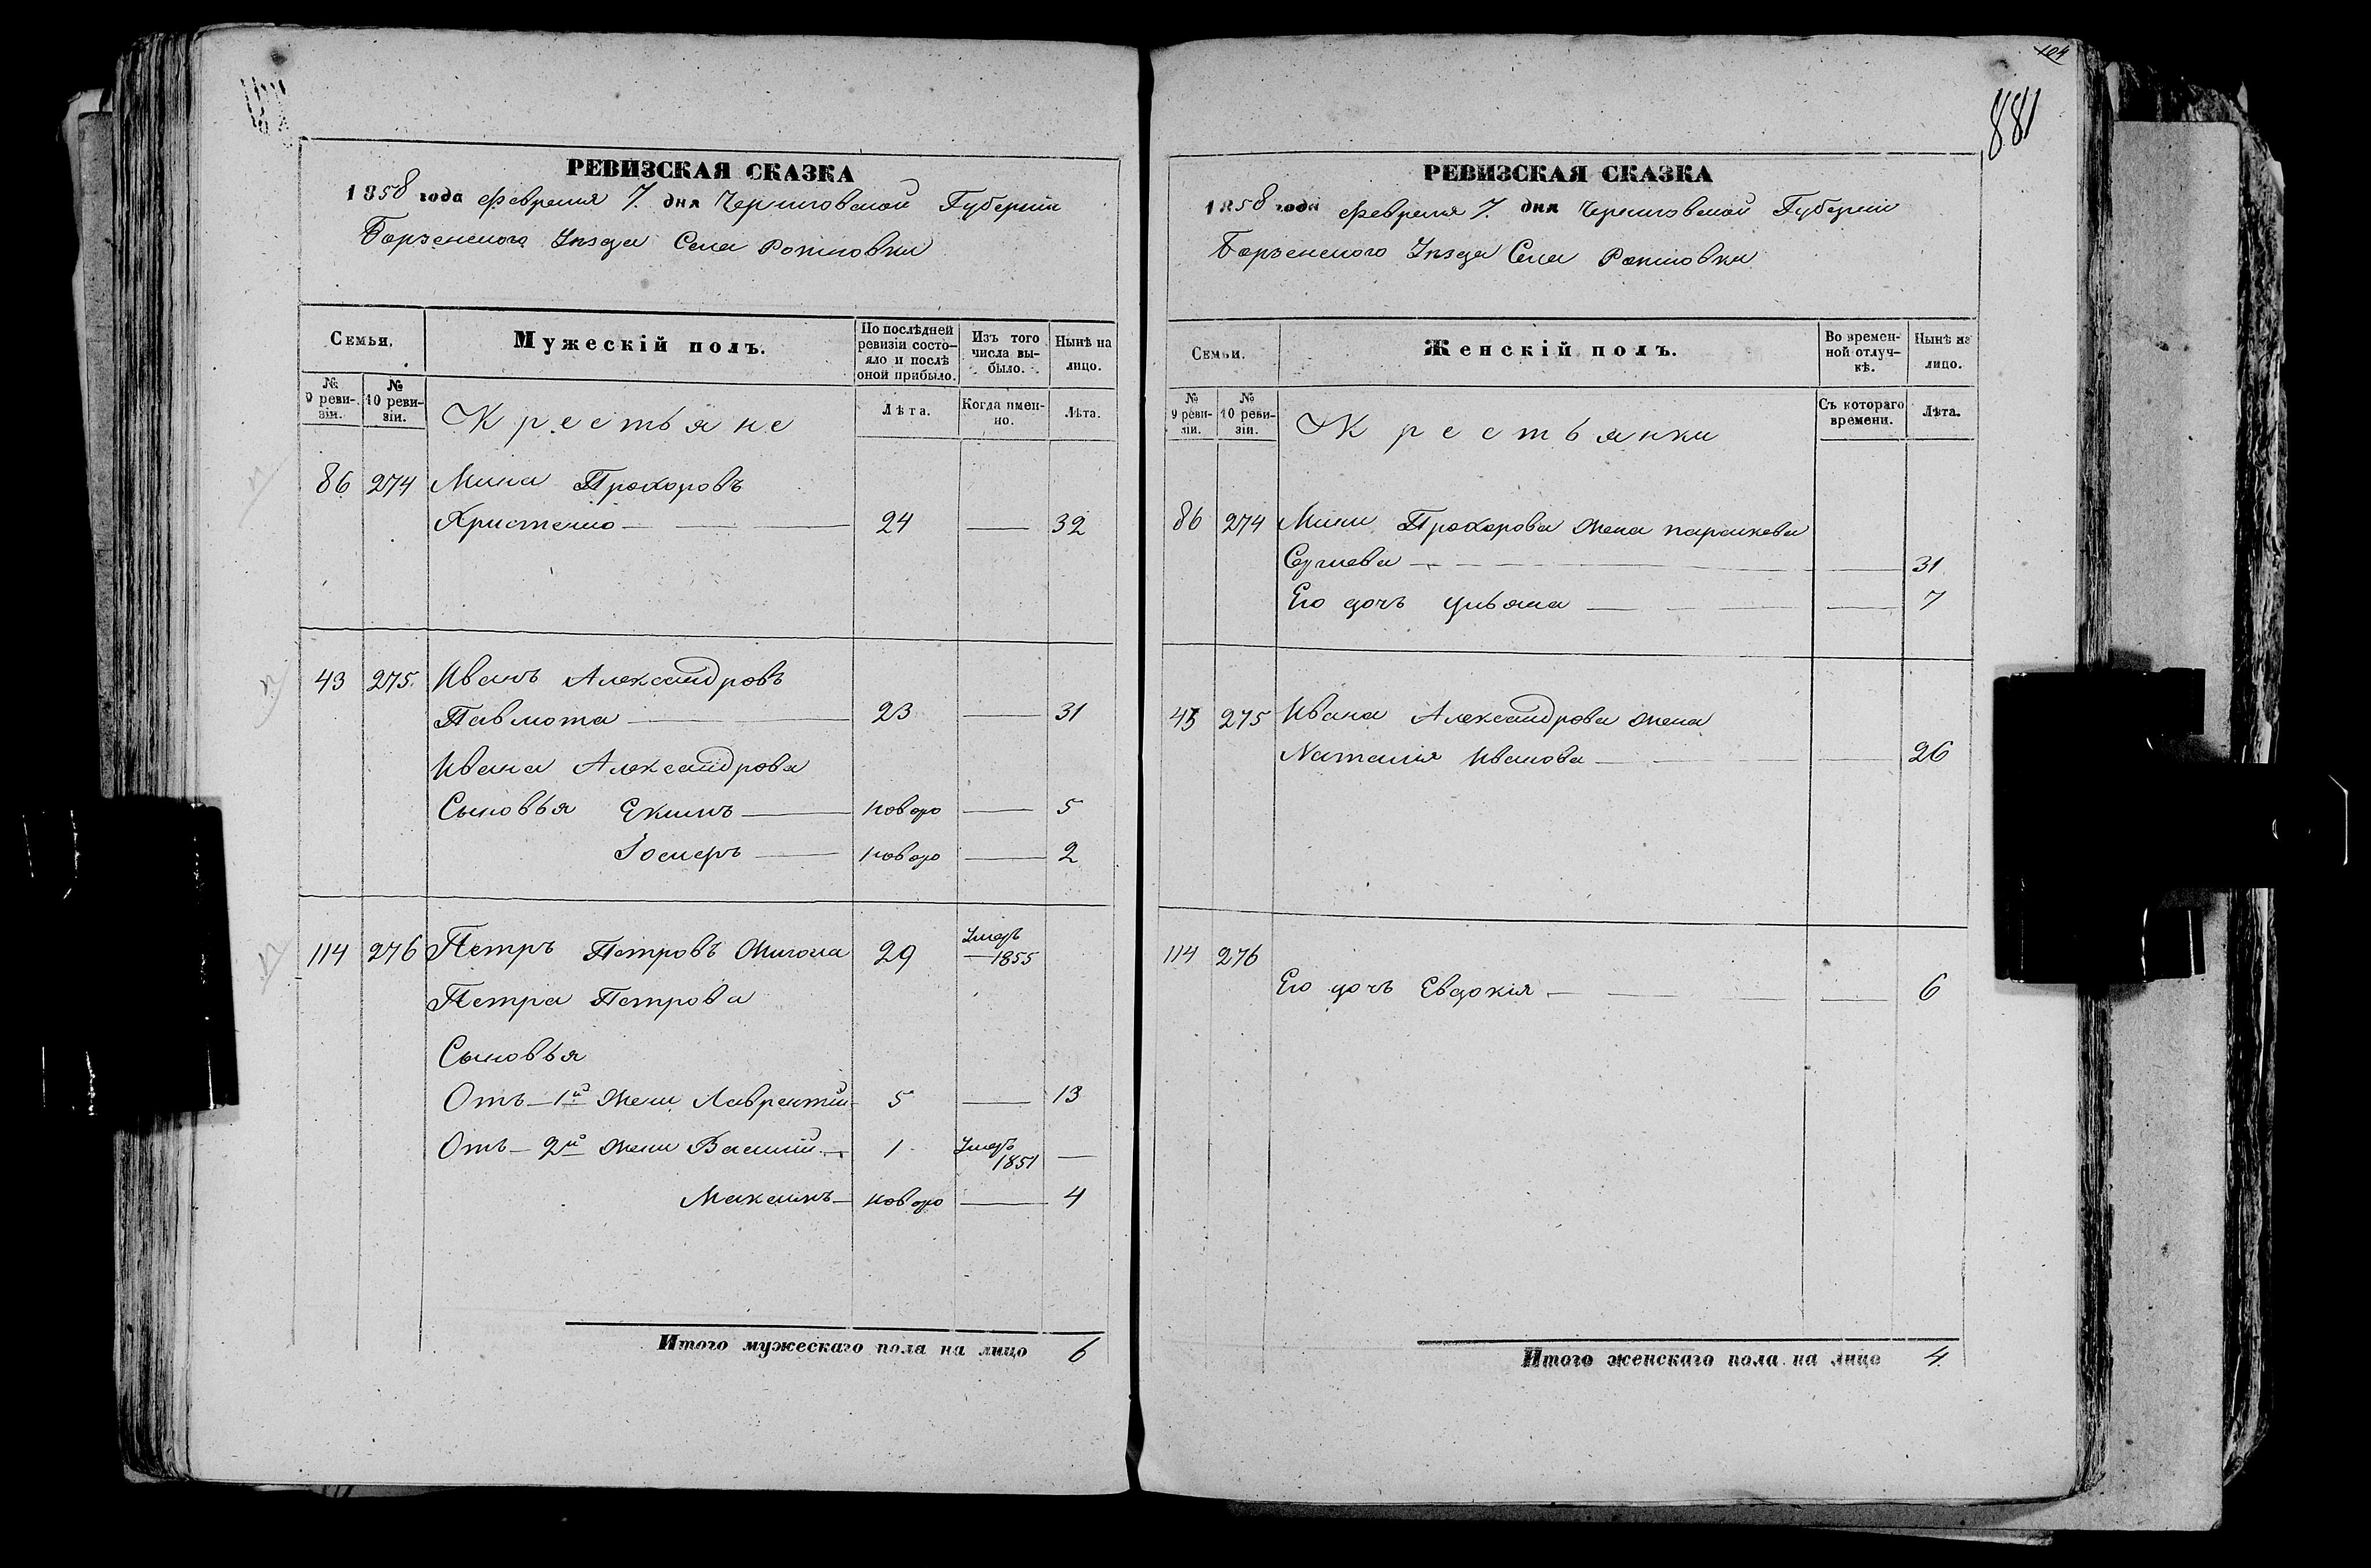 РЕВИЗСКАЯ СКАЗКА
1858 года Февраля 7. дня Черниговской Губерніи
Борзенского Уѣзда Села
Семьи.
Мужескій полъ.
По послѣдней ревизіи состо-
яло и послѣ
оной прибыло.
Изъ того
числа вы-
было.
Нынѣ на
лицо.
№
9 реви-
зіи.
№
10 реви-
зіи.
Крестьяне
Лѣта.
Когда имен-
но.
Лѣта.
86 274 Мина Прохоровъ
Христенко 24 32
43 275. Иванъ Александровъ
23 31
Ивана Александрова
Сыновья Екимъ новоро 5
новоро 2
114 276 Петръ Петровъ Жигола 29 Умеръ
1855
Петра Петрова
Сыновья
Отъ 1й жены Лаврентій 5 13
Отъ 2й жены Василій 1 Умеръ
1851
Максимъ новоро 4
Итого мужескаго пола на лицо 6
104
881
РЕВИЗСКАЯ СКАЗКА
1858 года Февраля 7. дня Черниговской Губерніи
Борзенского Уѣзда Села
Семьи.
Женскій полъ.
Во времен-
ной отлуч-
кѣ.
Нынѣ на
лицо.
№
9 реви-
зіи.
№
10 реви-
зіи.
Крестьянки
Съ котораго
времени.
Лѣта.
86 274 Мины Прохорова жена параскева
Сергиева 31
Его дочь Ульяна 7
43 275 Ивана Александрова жена
Наталія Иванова 26
114 276
Его дочь Евдокія 6
Итого женскаго пола на лицо 4.